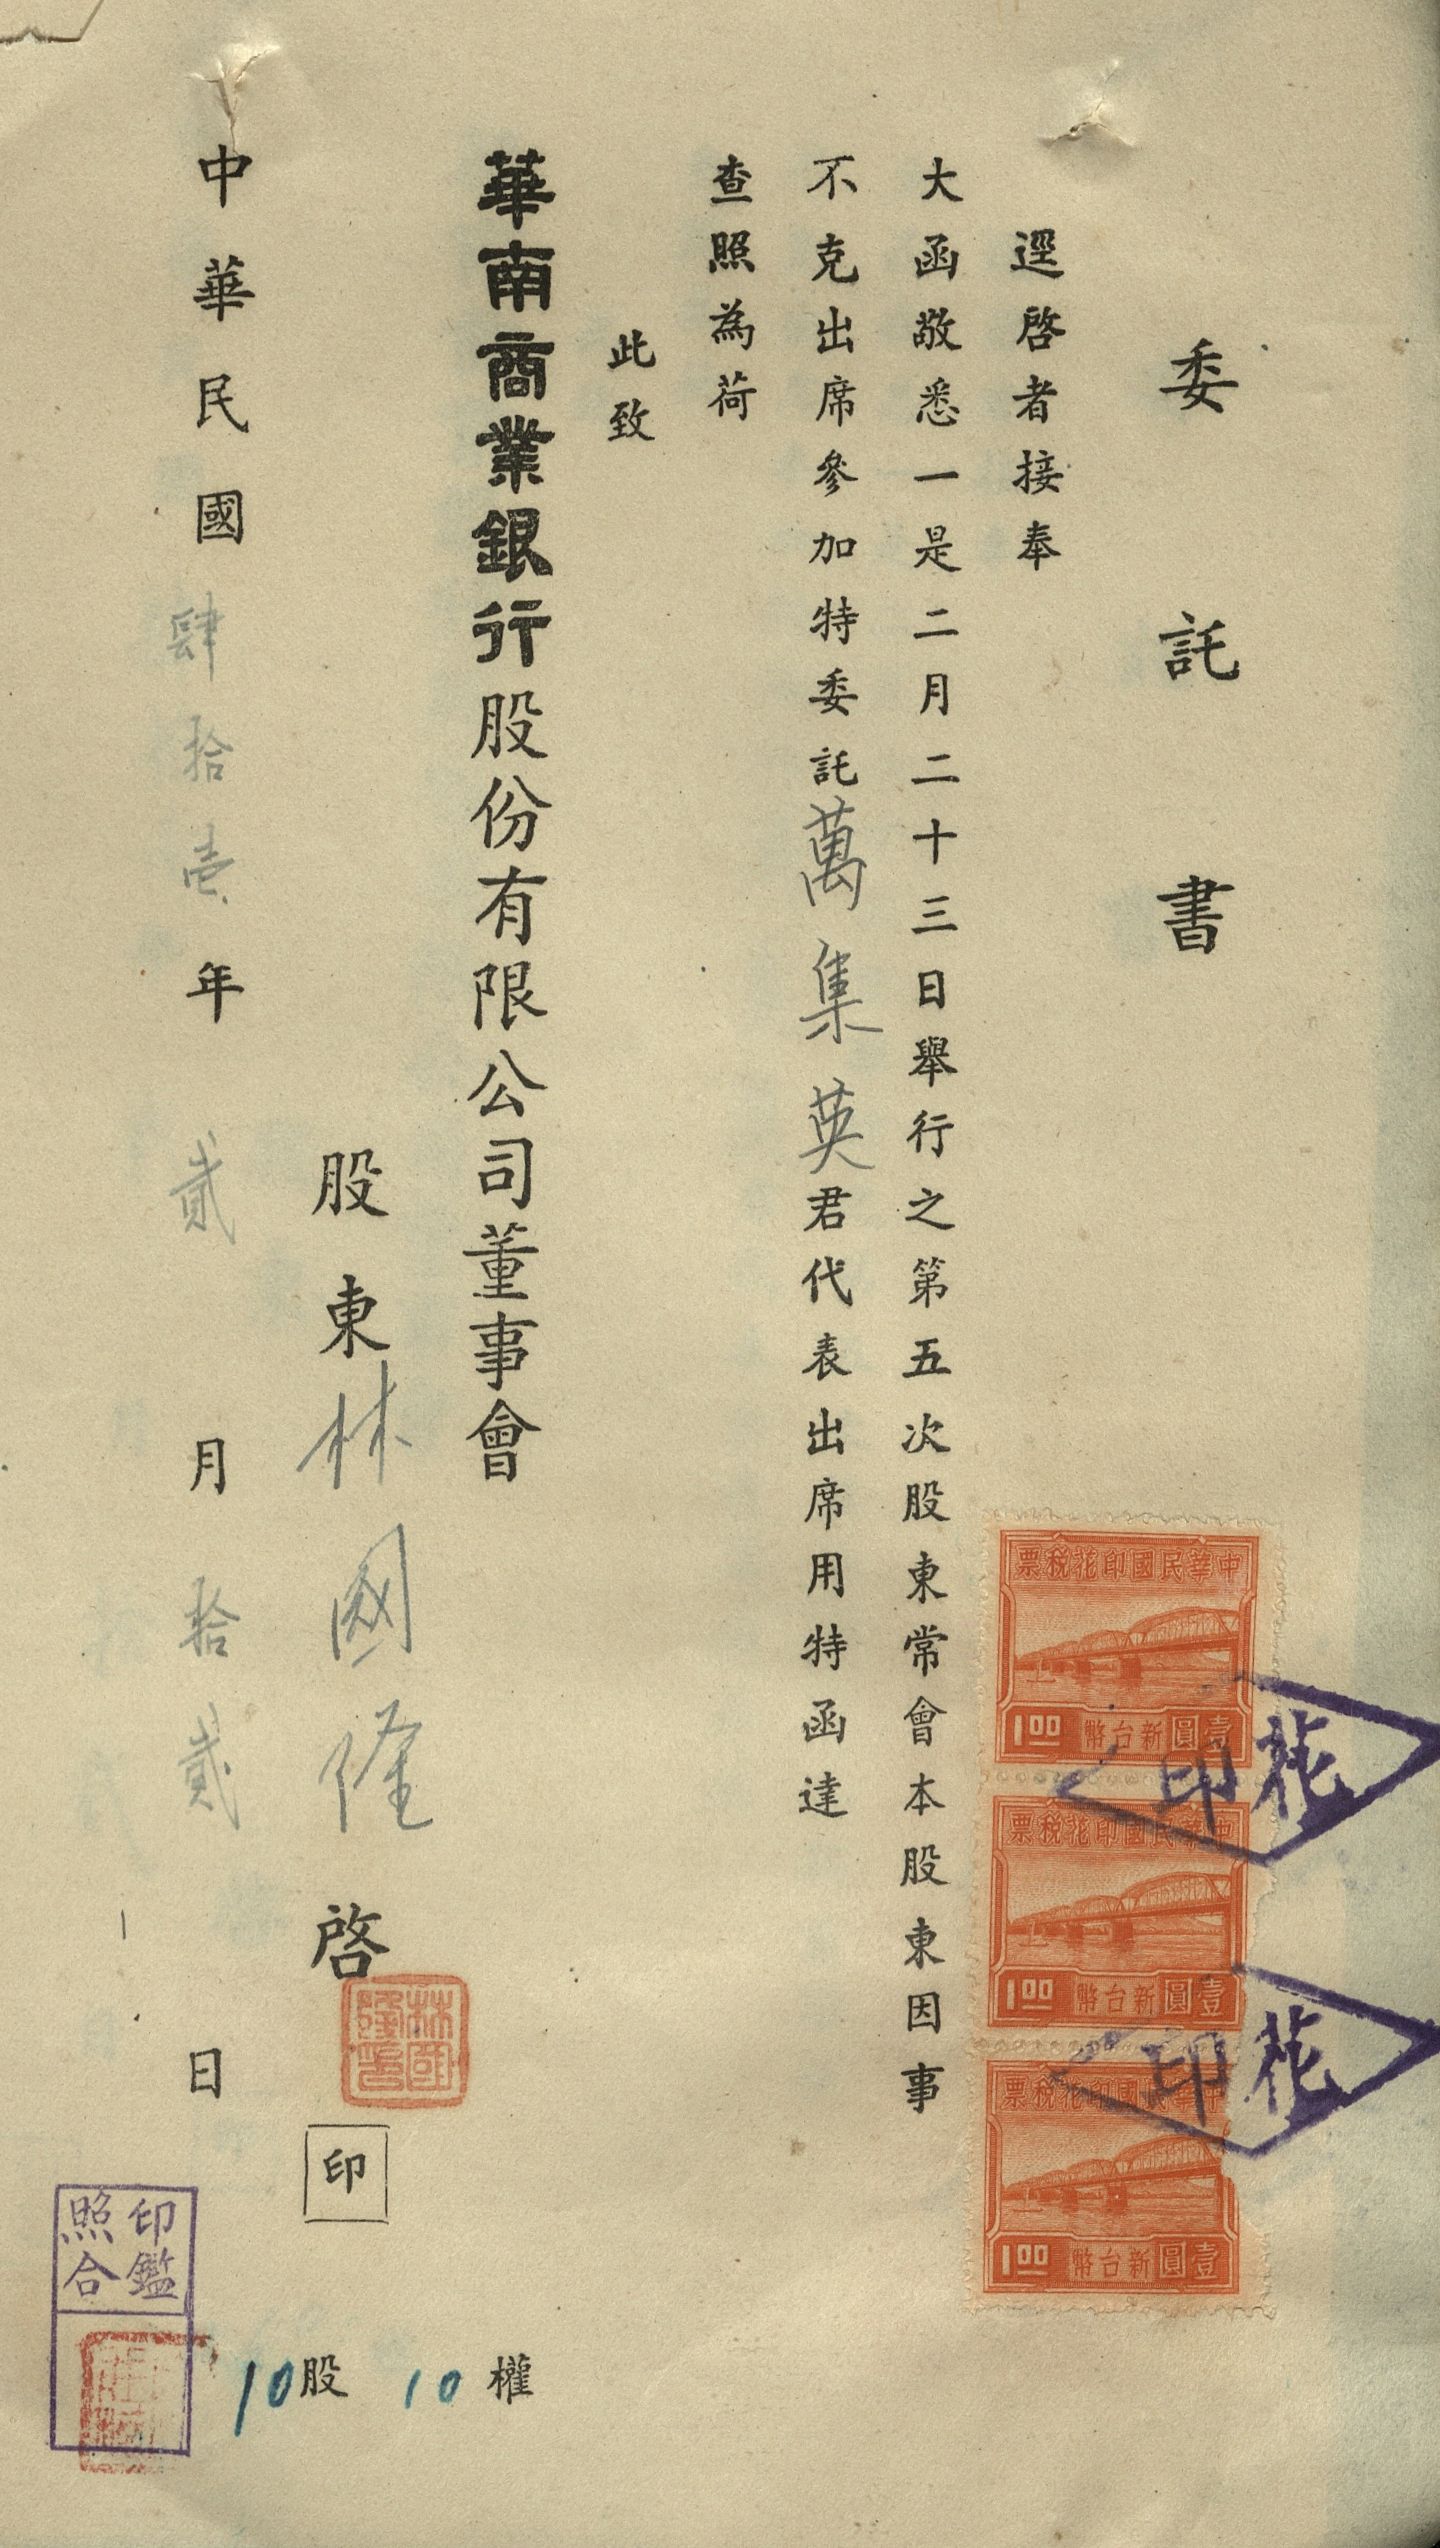 委託書
逕啓者接奉
大函敬悉一是二月二十三日舉行之第五次股東常會本股東因事
不克出席參加特委託萬集英君代表出席用特函達
查照為荷
此致
華南商業銀行股份有限公司董事會
股東林國隆啓
印
中華民國肆拾壹年貳月拾貳日
10股 10權
中華民國印花稅票
壹圓新台幣
1.00
中華民國印花稅票
壹圓新台幣
1.00
中華民國印花稅票
壹圓新台幣
1.00
花印
花印
林國隆印
印鑑
照合